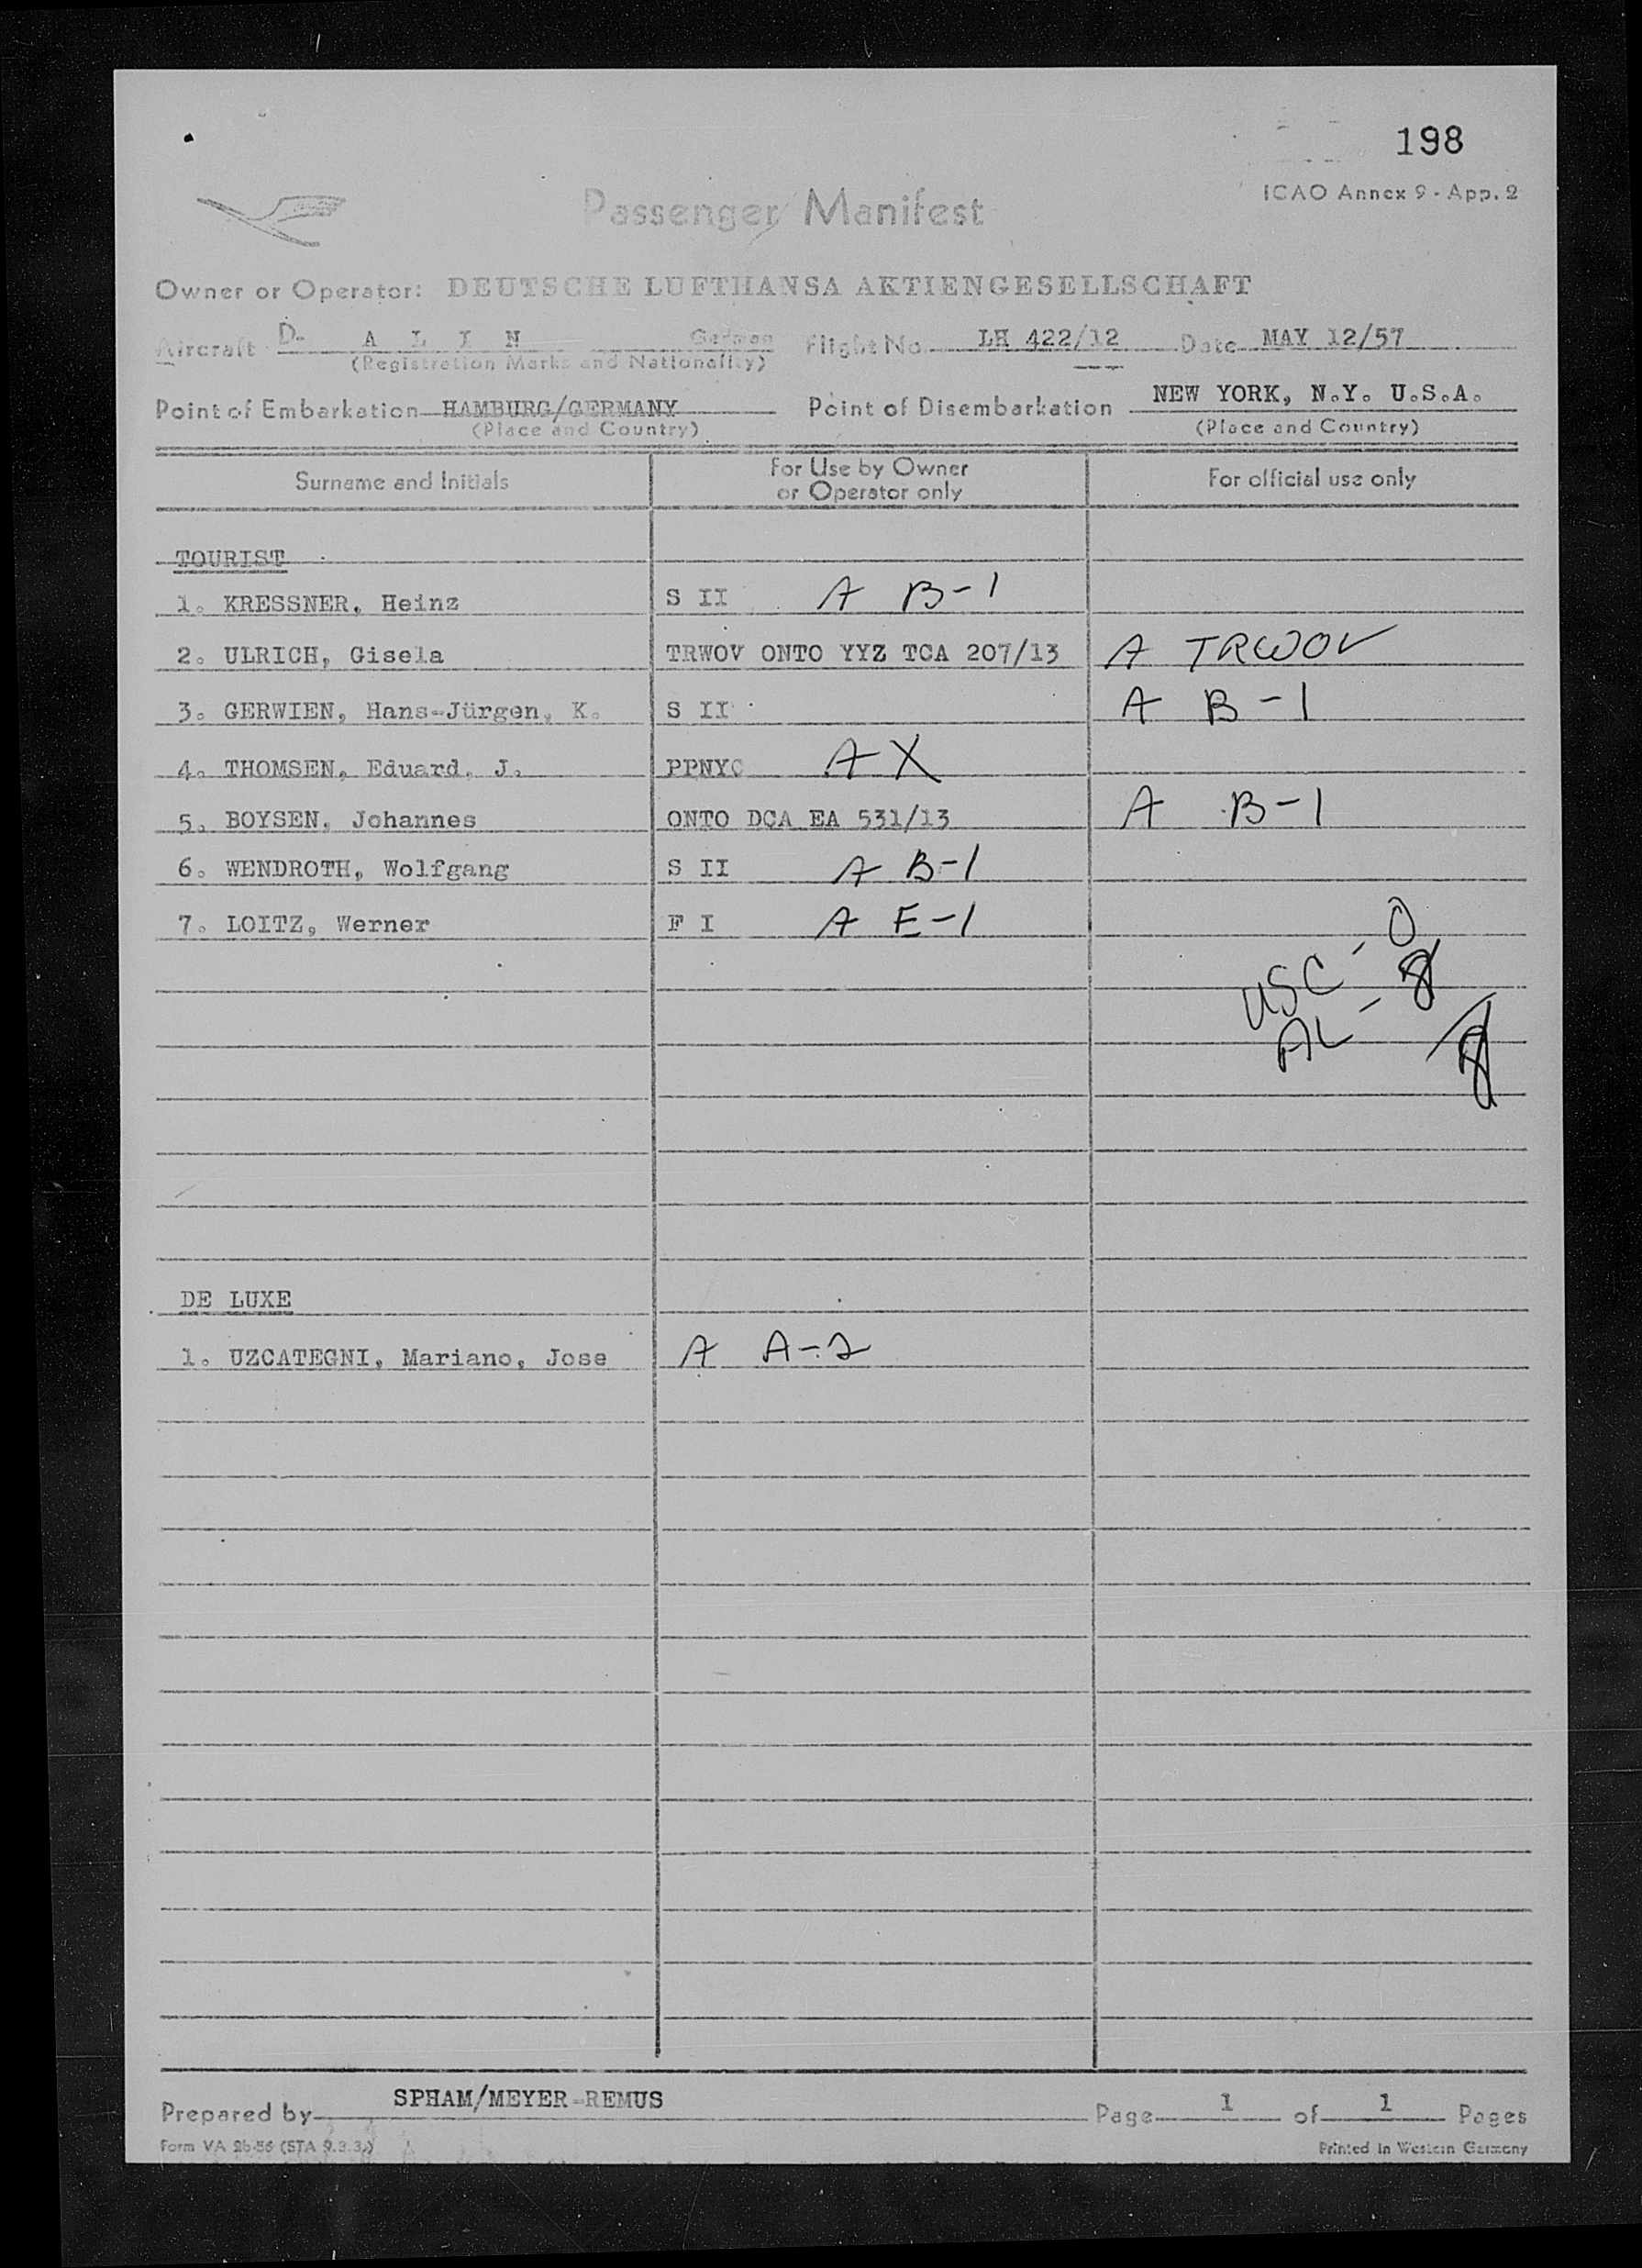 198
ICAO Annex 9 - App. 2
Passenger Manifest
Owner or Operator: DEUTSCHE LUFTHANSA AKTIENGESELLSCHAFT
Aircraft D- A L I N German Flight No. LH 422/12 Date MAY 12/57
(Registration Marks and Nationality)
Point of Embarkation HAMBURG/GERMANY Point of Disembarkation NEW YORK, N.Y. U.S.A.
(Place and Country) (Place and Country)
Surname and Initials For Use by Owner or Operator only For official use only
TOURIST
1. KRESSNER, Heinz S II A B-1
2. ULRICH, Gisela TRWOV ONTO YYZ TCA 207/13 A TRWOV
3. GERWIEN, Hans-Jürgen, K. S II A B-1
4. THOMSEN, Eduard, J. PPNYC A X
5. BOYSEN, Johannes ONTO DCA EA 531/13 A B-1
6. WENDROTH, Wolfgang S II A B-1
7. LOITZ, Werner F I A E-1
USC - 0
AL - 8
8
DE LUXE
1. UZCATEGNI, Mariano, Jose A A-2
Prepared by SPHAM/MEYER-REMUS Page 1 of 1 Pages
Form VA 2b-56 (STA 9.3.3.) Printed in Western Germany